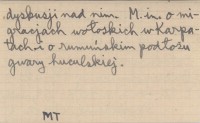 dyskusji nad nim. M. in. o mi-
gracjach wołoskich w Karpa-
tach i o rumuńskim podłożu
gwary huculskiej.
MT